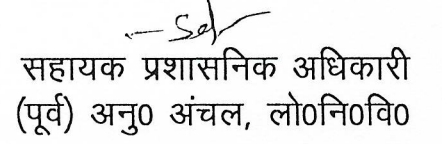 —Sd/-
सहायक प्रशासनिक अधिकारी
(पूर्व) अनु0 अंचल, लो0नि0वि0